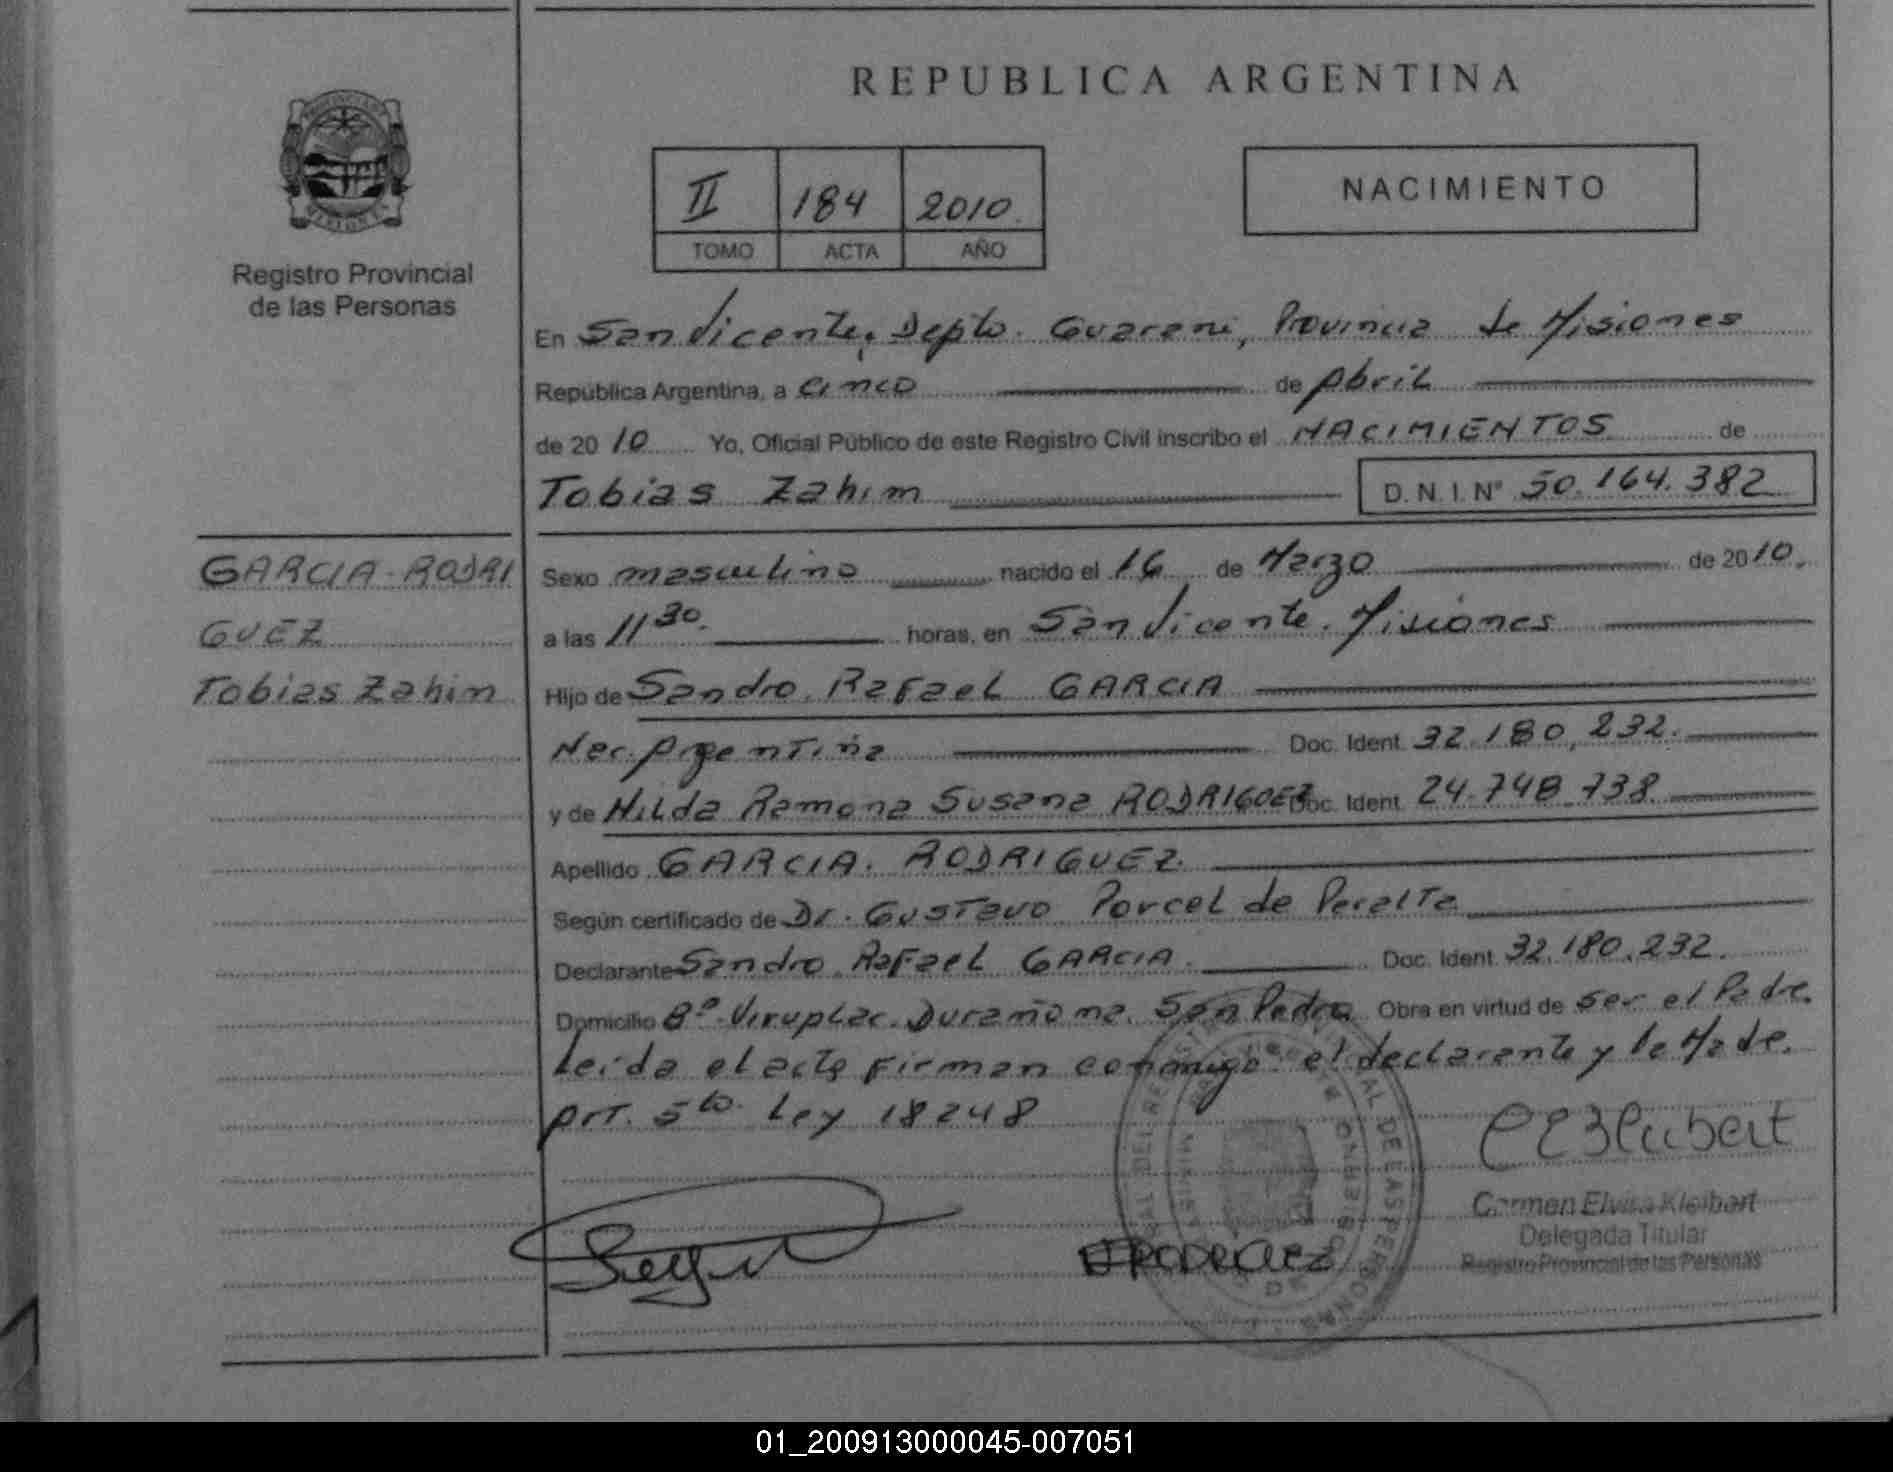 REPUBLICA ARGENTINA
PROVINCIA DE
MISIONES
Registro Provincial
de las Personas
II 184 2010
TOMO ACTA AÑO
NACIMIENTO
En San Vicente, Depto. Guarani, Provincia de Misiones
República Argentina, a cinco de Abril
de 2010 Yo, Oficial Público de este Registro Civil inscribo el NACIMIENTOS de
Tobias Zahim D.N.I. Nº 50.164.382
GARCIA-RODRI
GUEZ
Tobias Zahim
Sexo masculino nacido el 16 de Marzo de 2010.
a las 11 30. horas, en San Vicente. Misiones
Hijo de Sandro Rafael GARCIA
Nac. Argentina Doc. Ident. 32.180.232.
y de Nilda Ramona Susana RODRIGUEZ Doc. Ident. 24.748.738
Apellido GARCIA. RODRIGUEZ.
Según certificado de Dr. Gustavo Porcel de Peralta
Declarante Sandro Rafael GARCIA. Doc. Ident. 32.180.232.
Domicilio Bº San Pedro Obra en virtud de ser el Padre.
Leida el acta Firman conmigo el declarante y la Madre.
Art. 5to. Ley 18248
Carmen Elvisa Kleibert
Delegada Titular
Registro Provincial de las Personas
01_200913000045-007051